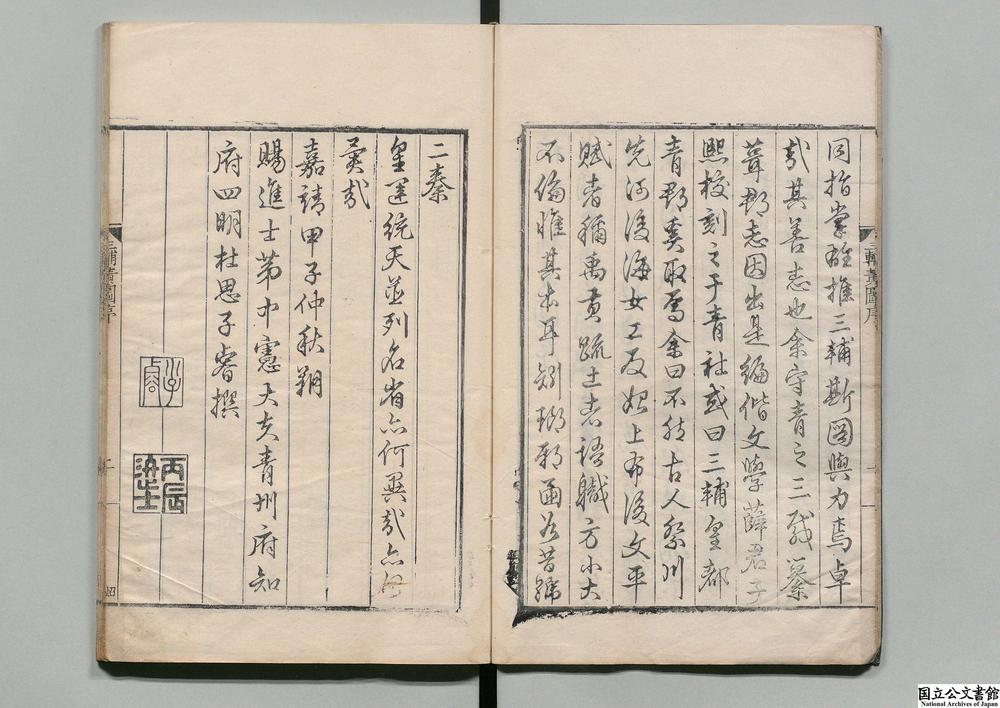 同指掌雖推三輔斯圖與力焉卓
哉其善志也余守青之三載纂
葺郡志因出是編偕文學薛君子
熙校刻之于青社或曰三輔皇都
青郡奚取焉余曰不然古人祭川
先河後海女工及 上布後文平
賦者稱禹貢疏土者語職方小大
不倫惟其本耳 琊 昔號
二秦
皇運統天並列名省亦何異哉亦何
異哉
嘉靖甲子仲秋朔
賜進士第中憲大夫青州府知
府四明杜思子睿撰
子睿
丙辰進士
三輔黃圖序
三輔黃圖序
二
四
国立公文書館
National Archives of Japan